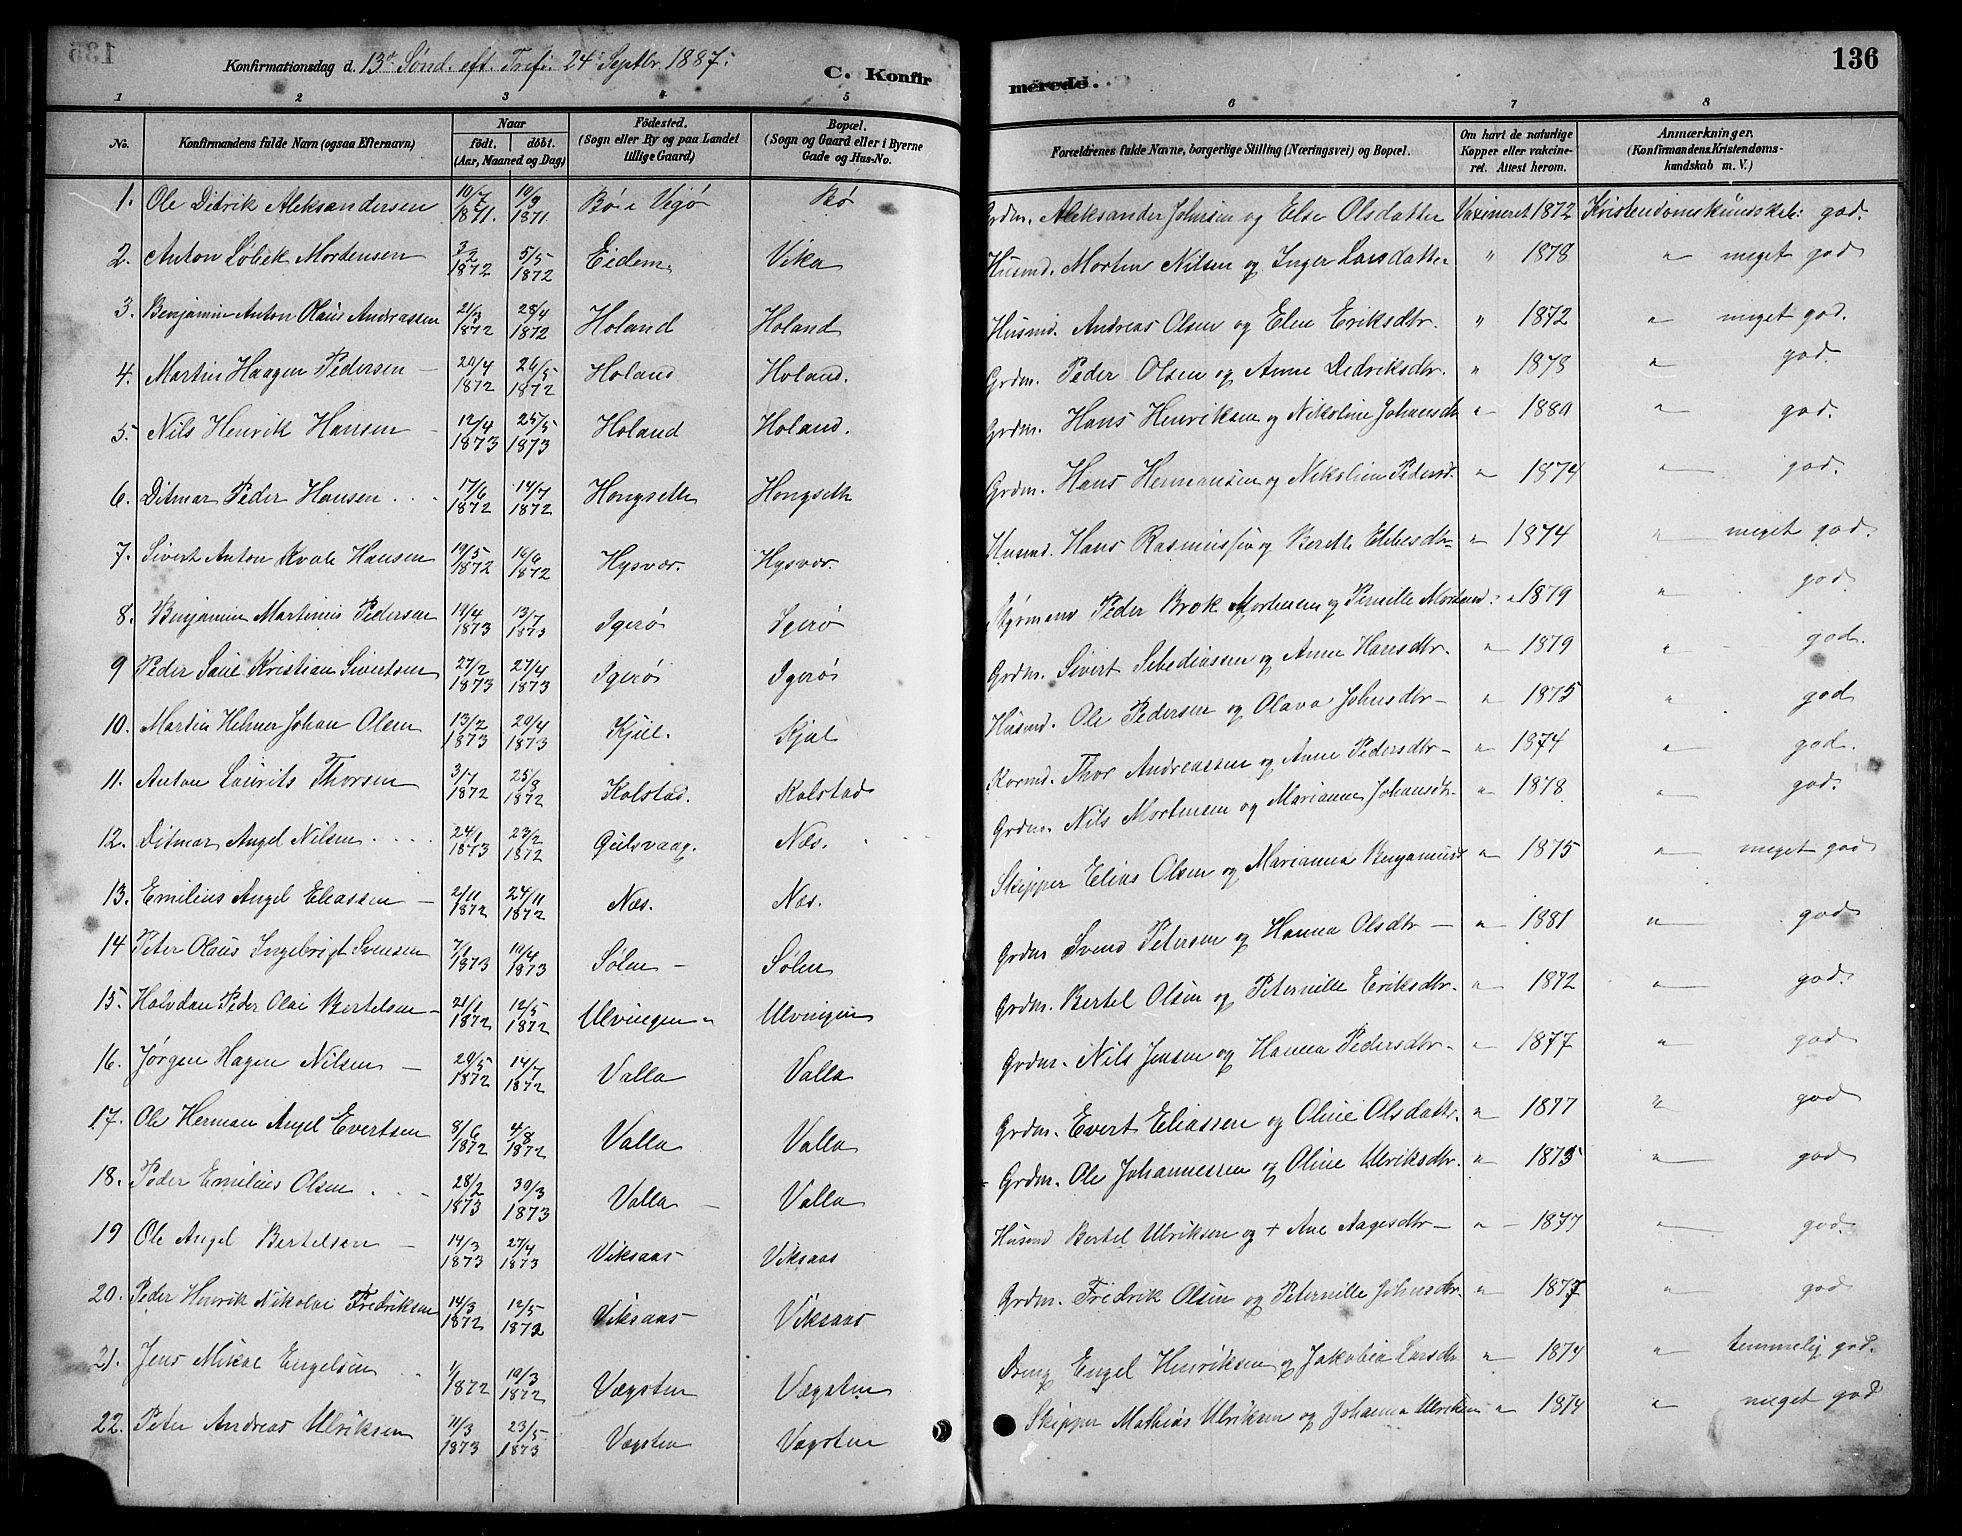 Konfirmationsdag d. 13de Sønd. eft. Tref. 24 Septbr. 1887.
C. Konfirmerede.
136
1 2 3 4 5 6 7 8
No. Konfirmandens fulde Navn (ogsaa Efternavn) Naar født. døbt. (Aar, Maaned og Dag) Fødested. (Sogn eller By og paa Landet tillige Gaard) Bopæl. (Sogn og Gaard eller i Byerne Gade og Hus-No. Forældrenes fulde Navne, borgerlige Stilling (Næringsvei) og Bopæl. Om havt de naturlige Kopper eller vakcineret. Attest herom. Anmærkninger. (Konfirmandens Kristendomskundskab m. V.)
1. Ole Ditrik Aleksandersen 10/7 1871. 10/9 1871 Bø i Vegø Bø Grdm. Aleksander Johnsen og Else Olsdatter Vaxineret 1872 Kristendomskundskab: god.
2. Anton Løbek Mordensen 3/2 1872 5/5 1872 Eidem Vika Husmd. Morten Nilsen og Inger Larsdatter " 1878 " meget god
3. Benjamin Anton Olaus Andrassen 21/3 1872 28/4 1872 Holand Holand Husmd. Andreas Olsen og Elen Eriksdtr. " 1872 " meget god.
4. Martin Haagen Pedersen 20/4 1872 26/5 1872 Holand Holand. Grdm. Peder Olsen og Anne Didriksdtr. " 1878 " god.
5. Nils Henrik Hansen 12/4 1873 25/5 1873 Holand Holand. Grdm. Hans Henriksen og Nikoline Johansdtr " 1880 " god.
6. Ditmar Peder Hansen 17/6 1872 14/7 1872 Hongseth Hongseth Grdm. Hans Hermansen og Nikoline Pedersd. " 1874 " god.
7. Sivert Anton Kvale Hansen 19/5 1872 16/6 1872 Hysvær. Hysvær. Husmd. Hans Rasmussen og Berthe Ebbesdtr " 1874 " meget god.
8. Benjamin Martinus Pedersen 14/4 1873 13/7 1873 Igerø Igerø Styrmand Peder Brok Mortensen og Pernille Mortensd: " 1879 " god
9 Peder Saul Kristian Sivertsen 27/2 1873 27/4 1873 Igerø Igerø Grdm. Sivert Sebediassen og Anne Hansdtr. " 1879 " god.
10. Martin Helmer Johan Olsen 13/2 1873 20/4 1873 Kjul. Kjul Husmd. Ole Pedersen og Olava Johnsdtr " 1875 " god
11. Anton Laurits Thorsen 3/7 1872 25/8 1872 Kolstad. Kolstad Kormd. Thor Andreassen og Anne Pedersdtr " 1874 " god.
12. Ditmar Angel Nilsen 24/1 1873 23/2 1872 Gulsvaag. Næs. Grdm. Nils Mortensen og Marianne Johansdtr. " 1878. " god.
13. Emilius Angel Eliassen 2/11 1872 24/11 1872 Næs. Næs. Skipper Elias Olsen og Marianna Benjaminsd " 1875 " meget god
14 Peter Olaus Ingebrigt Svensen 7/1 1873 10/4 1873 Sølen Sølen Grdm Svend Petersen og Hanna Olsdtr " 1881 " god
15. Halvdan Peder Olai Bertelsen 21/1 1872 12/5 1872 Ulvingen Ulvingen Grdm. Bertel Olsen og Peternille Eriksdtr. " 1872 " god.
16. Jørgen Hagen Nilsen 20/5 1872 14/7 1872 Valla Valla Grdm. Nils Jensen og Hanna Pedersdtr. " 1877 " god
17. Ole Herman Angel Evertsen 8/6 1872 4/8 1872 Valla Valla Grdm. Evert Eliassen og Oline Olsdattr. " 1877 " god
18. Peder Emilius Olsen 28/2 1873 30/3 1873 Valla Valla Grdm. Ole Johannessen og Oline Ulriksdtr. " 1875 " god
19 Ole Angel Bertelsen 14/3 1873 27/4 1873 Viksaas Viksaas Husmd Bertel Ulriksen og + Ane Aagesdtr " 1877 " god.
20. Peder Henrik Nikolai Fredriksen 14/3 1872 12/5 1872 Viksaas Viksaas Grdm. Fredrik Olsen og Peternille Johnsdtr. " 1877 " god
21. Jens Mikal Engelsen 1/1 1872 10/3 1872 Vægsten Vægsten Engel Henriksen og Jakobia Larsdtr " 1874 " temmelig god.
22. Peter Andreas Ulriksen 11/3 1873 23/5 1873 Vægsten Vægsten Skipper Mathias Ulriksen og Johanna Ulriksen " 1874 " meget god